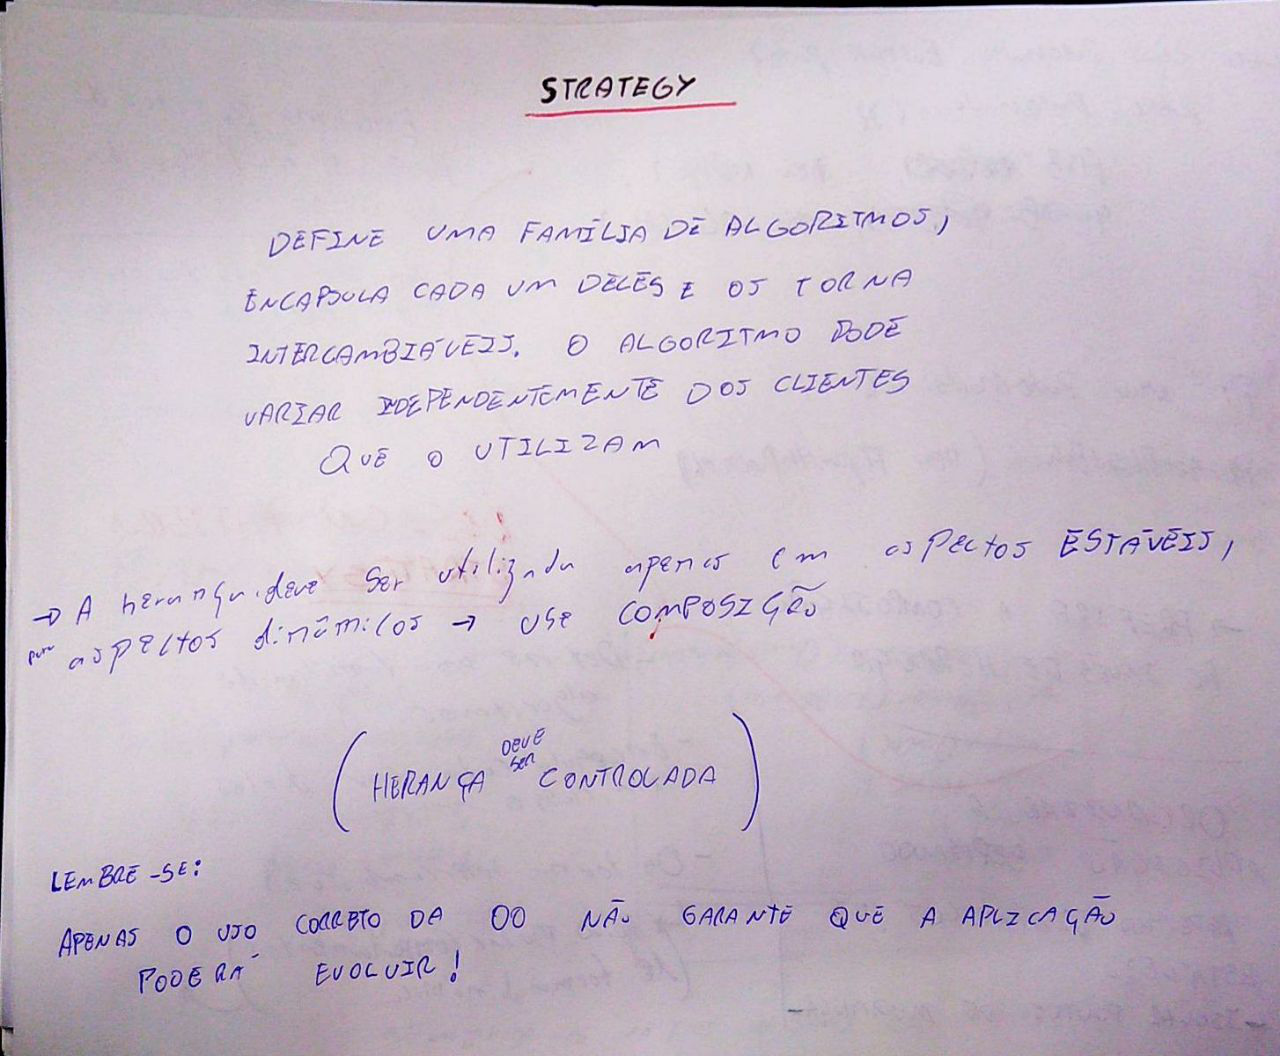 STRATEGY
DEFINE UMA FAMÍLIA DE ALGORITMOS,
ENCAPSULA CADA UM DELES E OS TORNA
INTERCAMBIÁVEIS. O ALGORITMO PODE
VARIAR INDEPENDENTEMENTE DOS CLIENTES
QUE O UTILIZAM
→ A herança deve ser utilizada apenas em aspectos ESTÁVEIS,
para aspectos dinâmicos → use COMPOSIÇÃO
(HERANÇA DEVE SER CONTROLADA)
LEMBRE-SE:
APENAS O USO CORRETO DA OO NÃO GARANTE QUE A APLICAÇÃO
PODERÁ EVOLUIR!